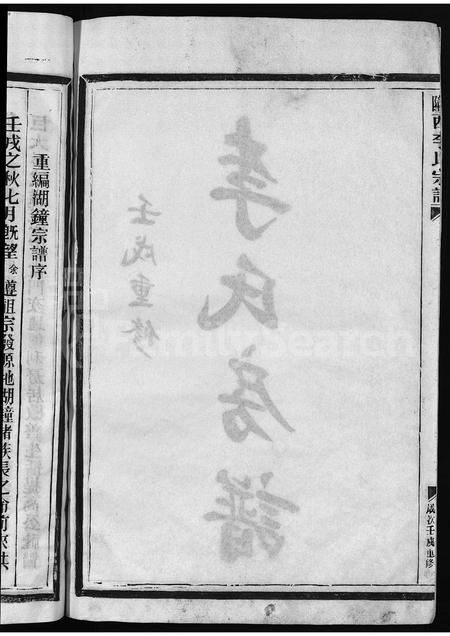 隴西李氏宗譜
歲次壬戌重修
李氏房譜
壬戌重修
重編湖鐘宗譜序
壬戌之秋七月既望余遵祖宗發源地湖鐘諸族長之命前來其
FamilySearch